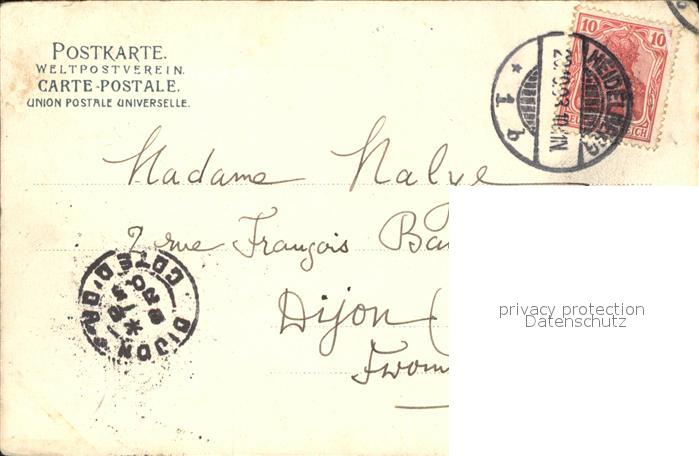 POSTKARTE.
WELTPOSTVEREIN.
CARTE-POSTALE.
UNION POSTALE UNIVERSELLE.
10 10
HEIDELBERG
* 1 b
Madame Malye
2 rue François Ba
Dijon (
DIJON
COTE D'OR
privacy protection
Datenschutz